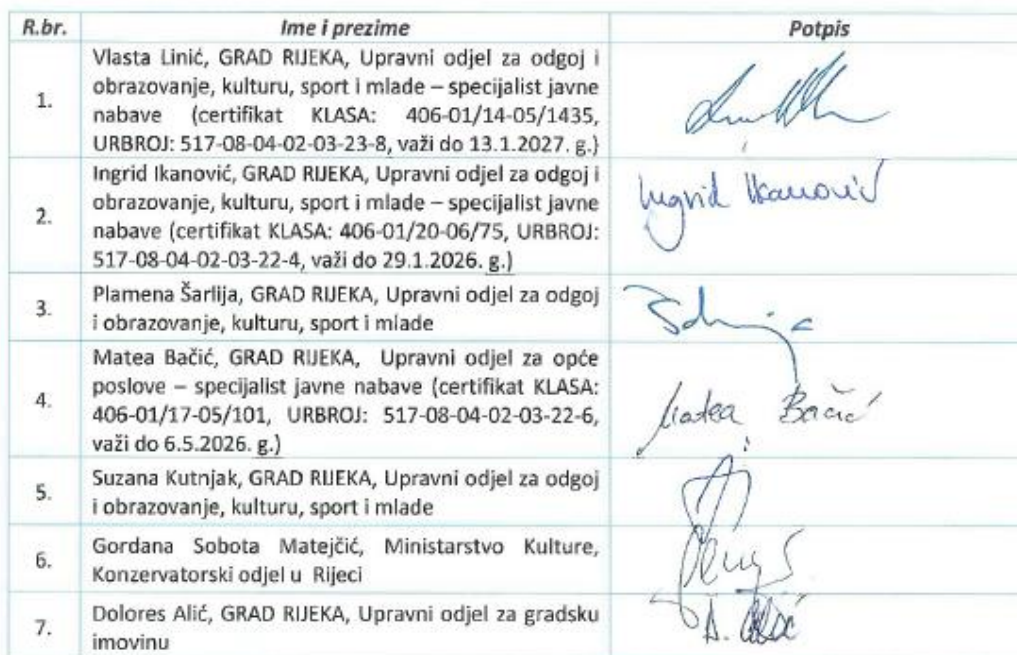 R.br. Ime i prezime Potpis
1.
Vlasta Linić, GRAD RIJEKA, Upravni odjel za odgoj i
obrazovanje, kulturu, sport i mlade – specijalist javne
nabave (certifikat KLASA: 406-01/14-05/1435,
URBROJ: 517-08-04-02-03-23-8, važi do 13.1.2027. g.)
2.
Ingrid Ikanović, GRAD RIJEKA, Upravni odjel za odgoj i
obrazovanje, kulturu, sport i mlade – specijalist javne
nabave (certifikat KLASA: 406-01/20-06/75, URBROJ:
517-08-04-02-03-22-4, važi do 29.1.2026. g.)
Ingrid Ikanović
3.
Plamena Šarlija, GRAD RIJEKA, Upravni odjel za odgoj
i obrazovanje, kulturu, sport i mlade
4.
Matea Bačić, GRAD RIJEKA, Upravni odjel za opće
poslove – specijalist javne nabave (certifikat KLASA:
406-01/17-05/101, URBROJ: 517-08-04-02-03-22-6,
važi do 6.5.2026. g.)
Matea Bačić
5.
Suzana Kutnjak, GRAD RIJEKA, Upravni odjel za odgoj
i obrazovanje, kulturu, sport i mlade
6.
Gordana Sobota Matejčić, Ministarstvo Kulture,
Konzervatorski odjel u Rijeci
7.
Dolores Alić, GRAD RIJEKA, Upravni odjel za gradsku
imovinu